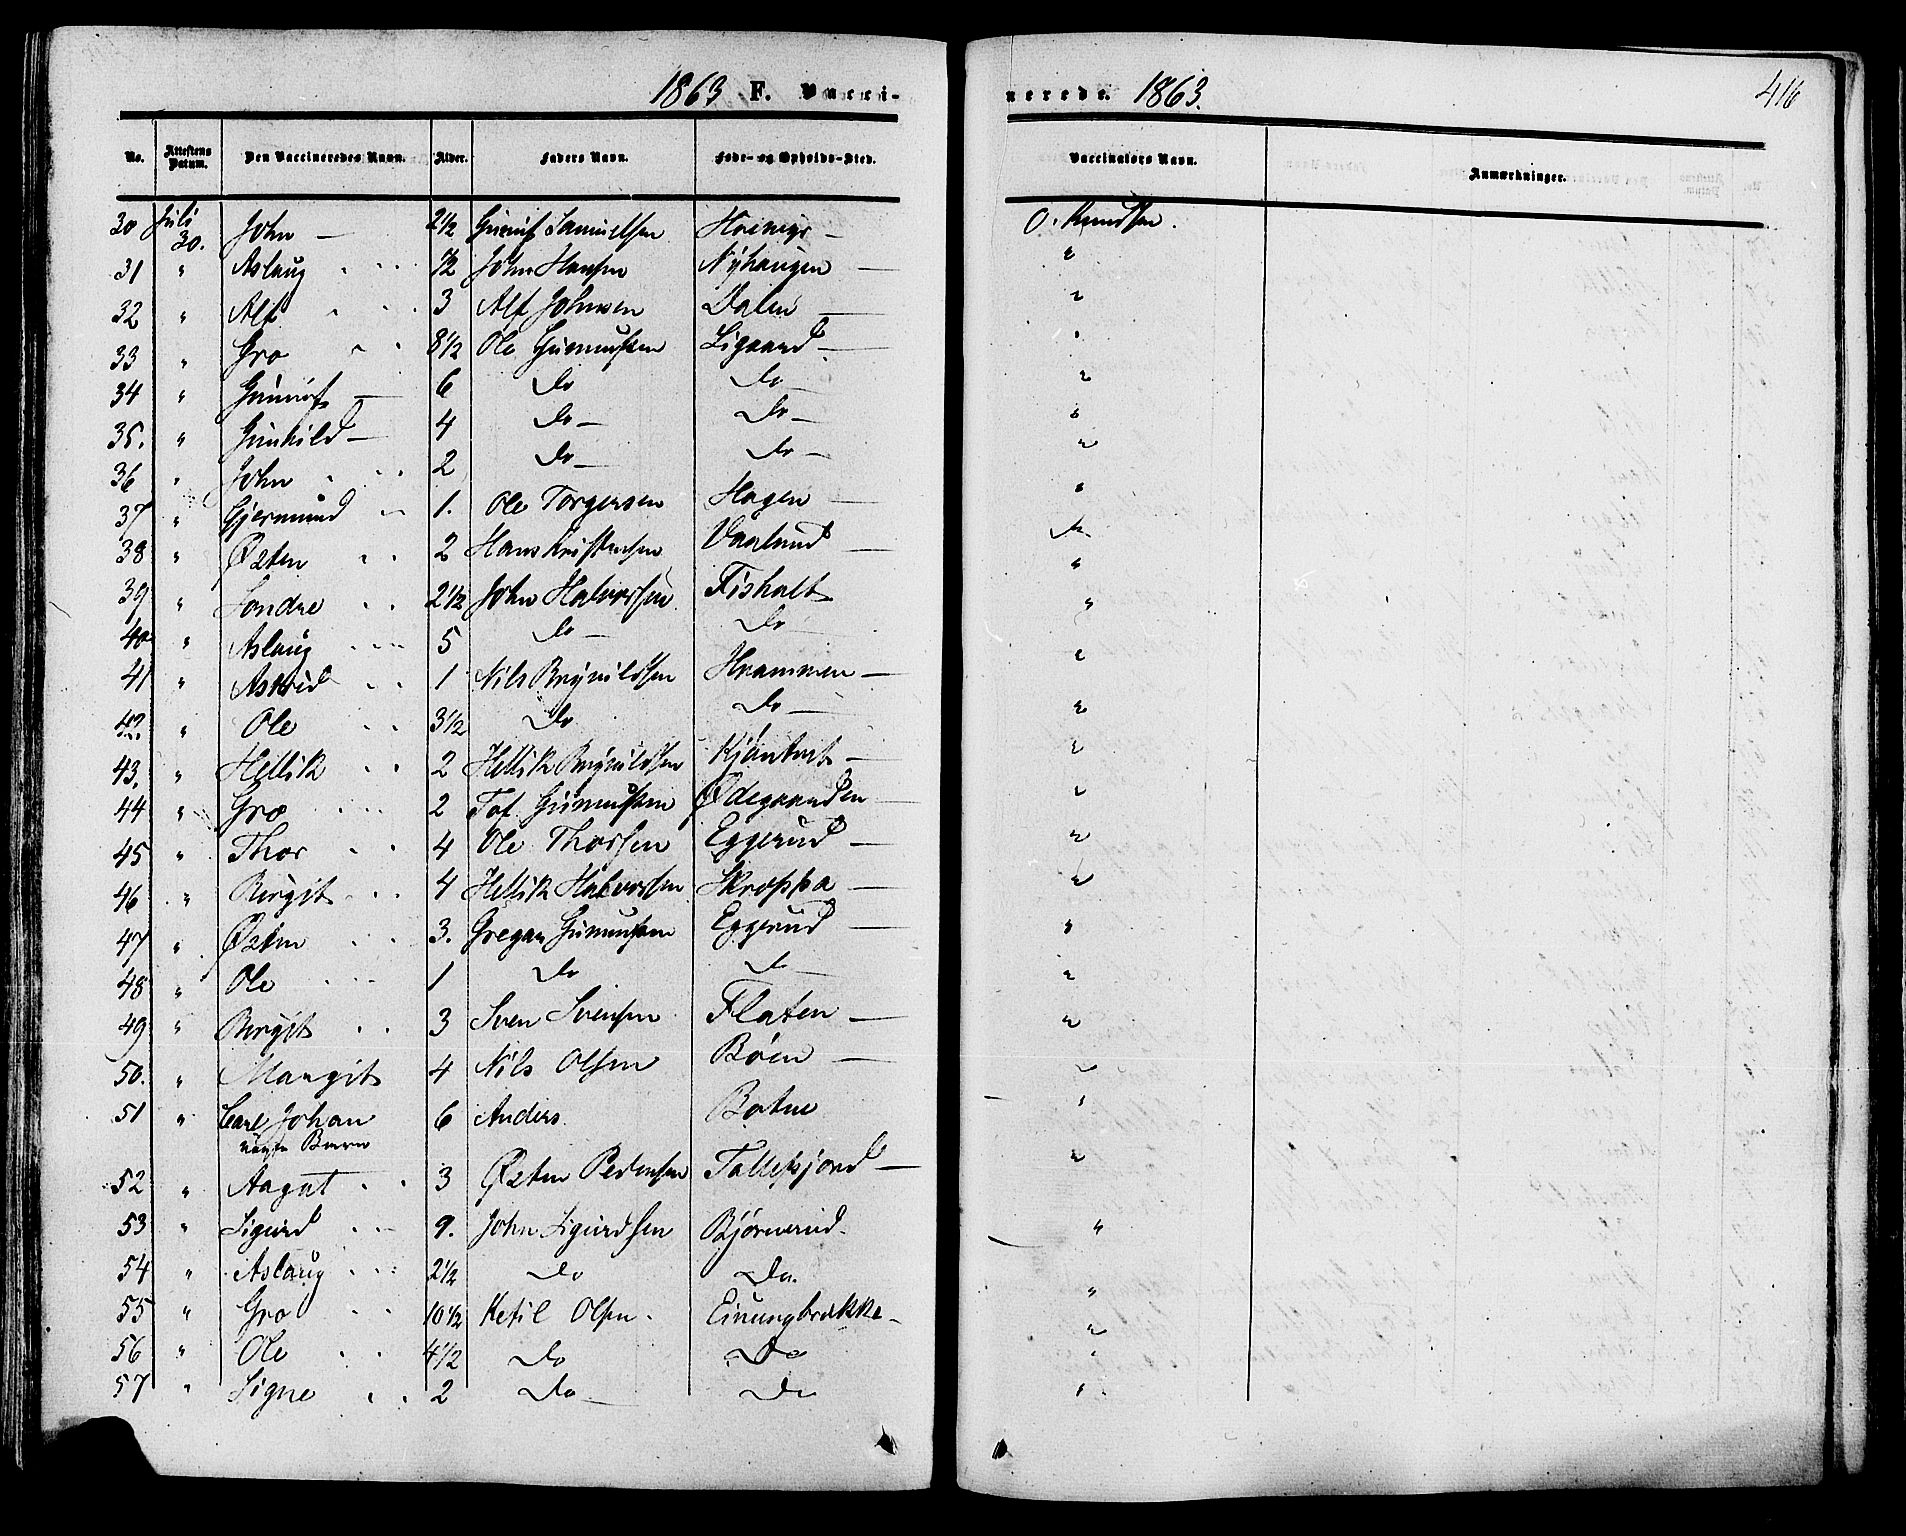 1863 F. Vacci-
nerede. 1863.
416
No. Attestens Datum. Den Vaccineredes Navn. Alder. Faders Navn. Føde- og Opholds-Sted. Vaccinators Navn. Anmærkninger.
30 Juli 30. John — 2 1/2 Samuelsen O. Knudsen.
31 " Aslaug John Hansen Nyhaugen — "
32 " Alf 3 Alf Johnsen Dalen — "
33 " Gro 8 1/2 Ole Gunnufsen Ligaard — "
34 " Gunnuf — 6 Do Do — "
35. " Gunhild — 4 Do — Do — "
36 " John 2 Do — Do — "
37 " Gjermund 1. Ole Torgersen Hagen — "
38 " Østen 2 Hans Kristensen Vaalund — "
39 " Sondre 2 1/2 John Halvorsen Fishalt "
40 " Aslaug 5 Do — Do — "
41 " Astrid 1 Nils Brynildsen Hvammen — "
42. " Ole 3 1/2 Do Do — "
43. " Hellik 2 Hellik Brynildsen — "
44 " Gro 2 Tof Gunnufsen Ødegaarden — "
45 " Thor 4 Ole Thorsen Eggerud — "
46 " Birgit 4 Hellik Halvorsen Skroppa — "
47 " Østen 3. Gregar Gunnufsen Eggerud — "
48 " Ole 1 Do Do — "
49 " Birgit 3 Sven Svensen Flaten — "
50. " Margit 4 Nils Olsen Bøen — "
51 " Carl Johan 6 Anders. Botne "
uægte Barn
52 " Aagot 3 Østen Pedersen Tallefsjord — "
53 " Sigurd 9. John Sigurdsen Bjørnerud. "
54 " Aslaug 2 1/2 Do Do. "
55 " Gro 10 1/2 Ketil Olsen. Einungbrække — "
56 " Ole 4 1/2 Do Do "
57 " Signe 2 Do — Do "